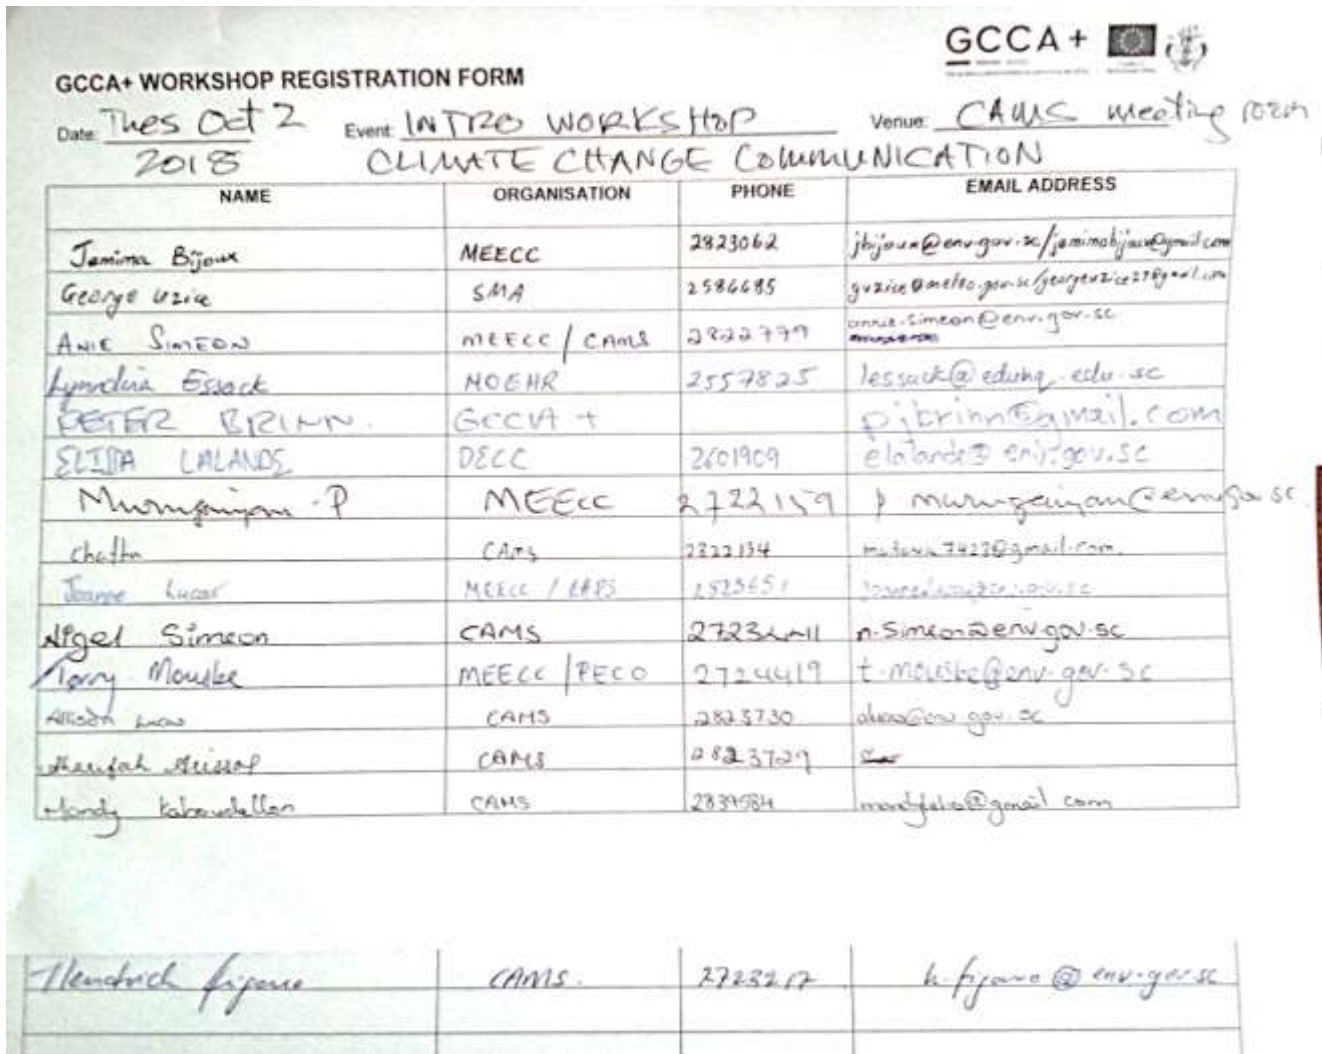 GCCA+
GCCA+ WORKSHOP REGISTRATION FORM
Date: Tues Oct 2 Event: INTRO WORKSHOP Venue: CAMS meeting room
2018 CLIMATE CHANGE COMMUNICATION
NAME ORGANISATION PHONE EMAIL ADDRESS
Jemima Bijoux MEECC 2823062 jbijoux@env.gov.sc/jemimabijoux@gmail.com
George Uzice SMA 2586685 guzice@meteo.gov.sc/georgeuzice27@gmail.com
ANIE SIMEON MEECC / CAMS 2822779 annie.simeon@env.gov.sc
Lyndia Essack MOEHR 2557825 lessack@eduhq.edu.sc
PETER BRINN. GCCA + pjbrinn@gmail.com
ELISA LALANDE DECC 2601909 elalande@env.gov.sc
Murugaiyan .P MEECC 2722159 p murugaiyan@env.gov.sc
CAMS 2822134 @gmail.com.
Joanne Lucas MEECC / 2523651
Nigel Simeon CAMS n.Simeon@env.gov.sc
Terry Mouske MEECC /PECO 2724419 t.mouske@env.gov.sc
Lucas CAMS 2823730 alucas@env.gov.sc
CAMS 2823729
Mandy CAMS 2839584 @gmail com
Hendrich figaro CAMS. 2723217 h.figaro@env.gov.sc